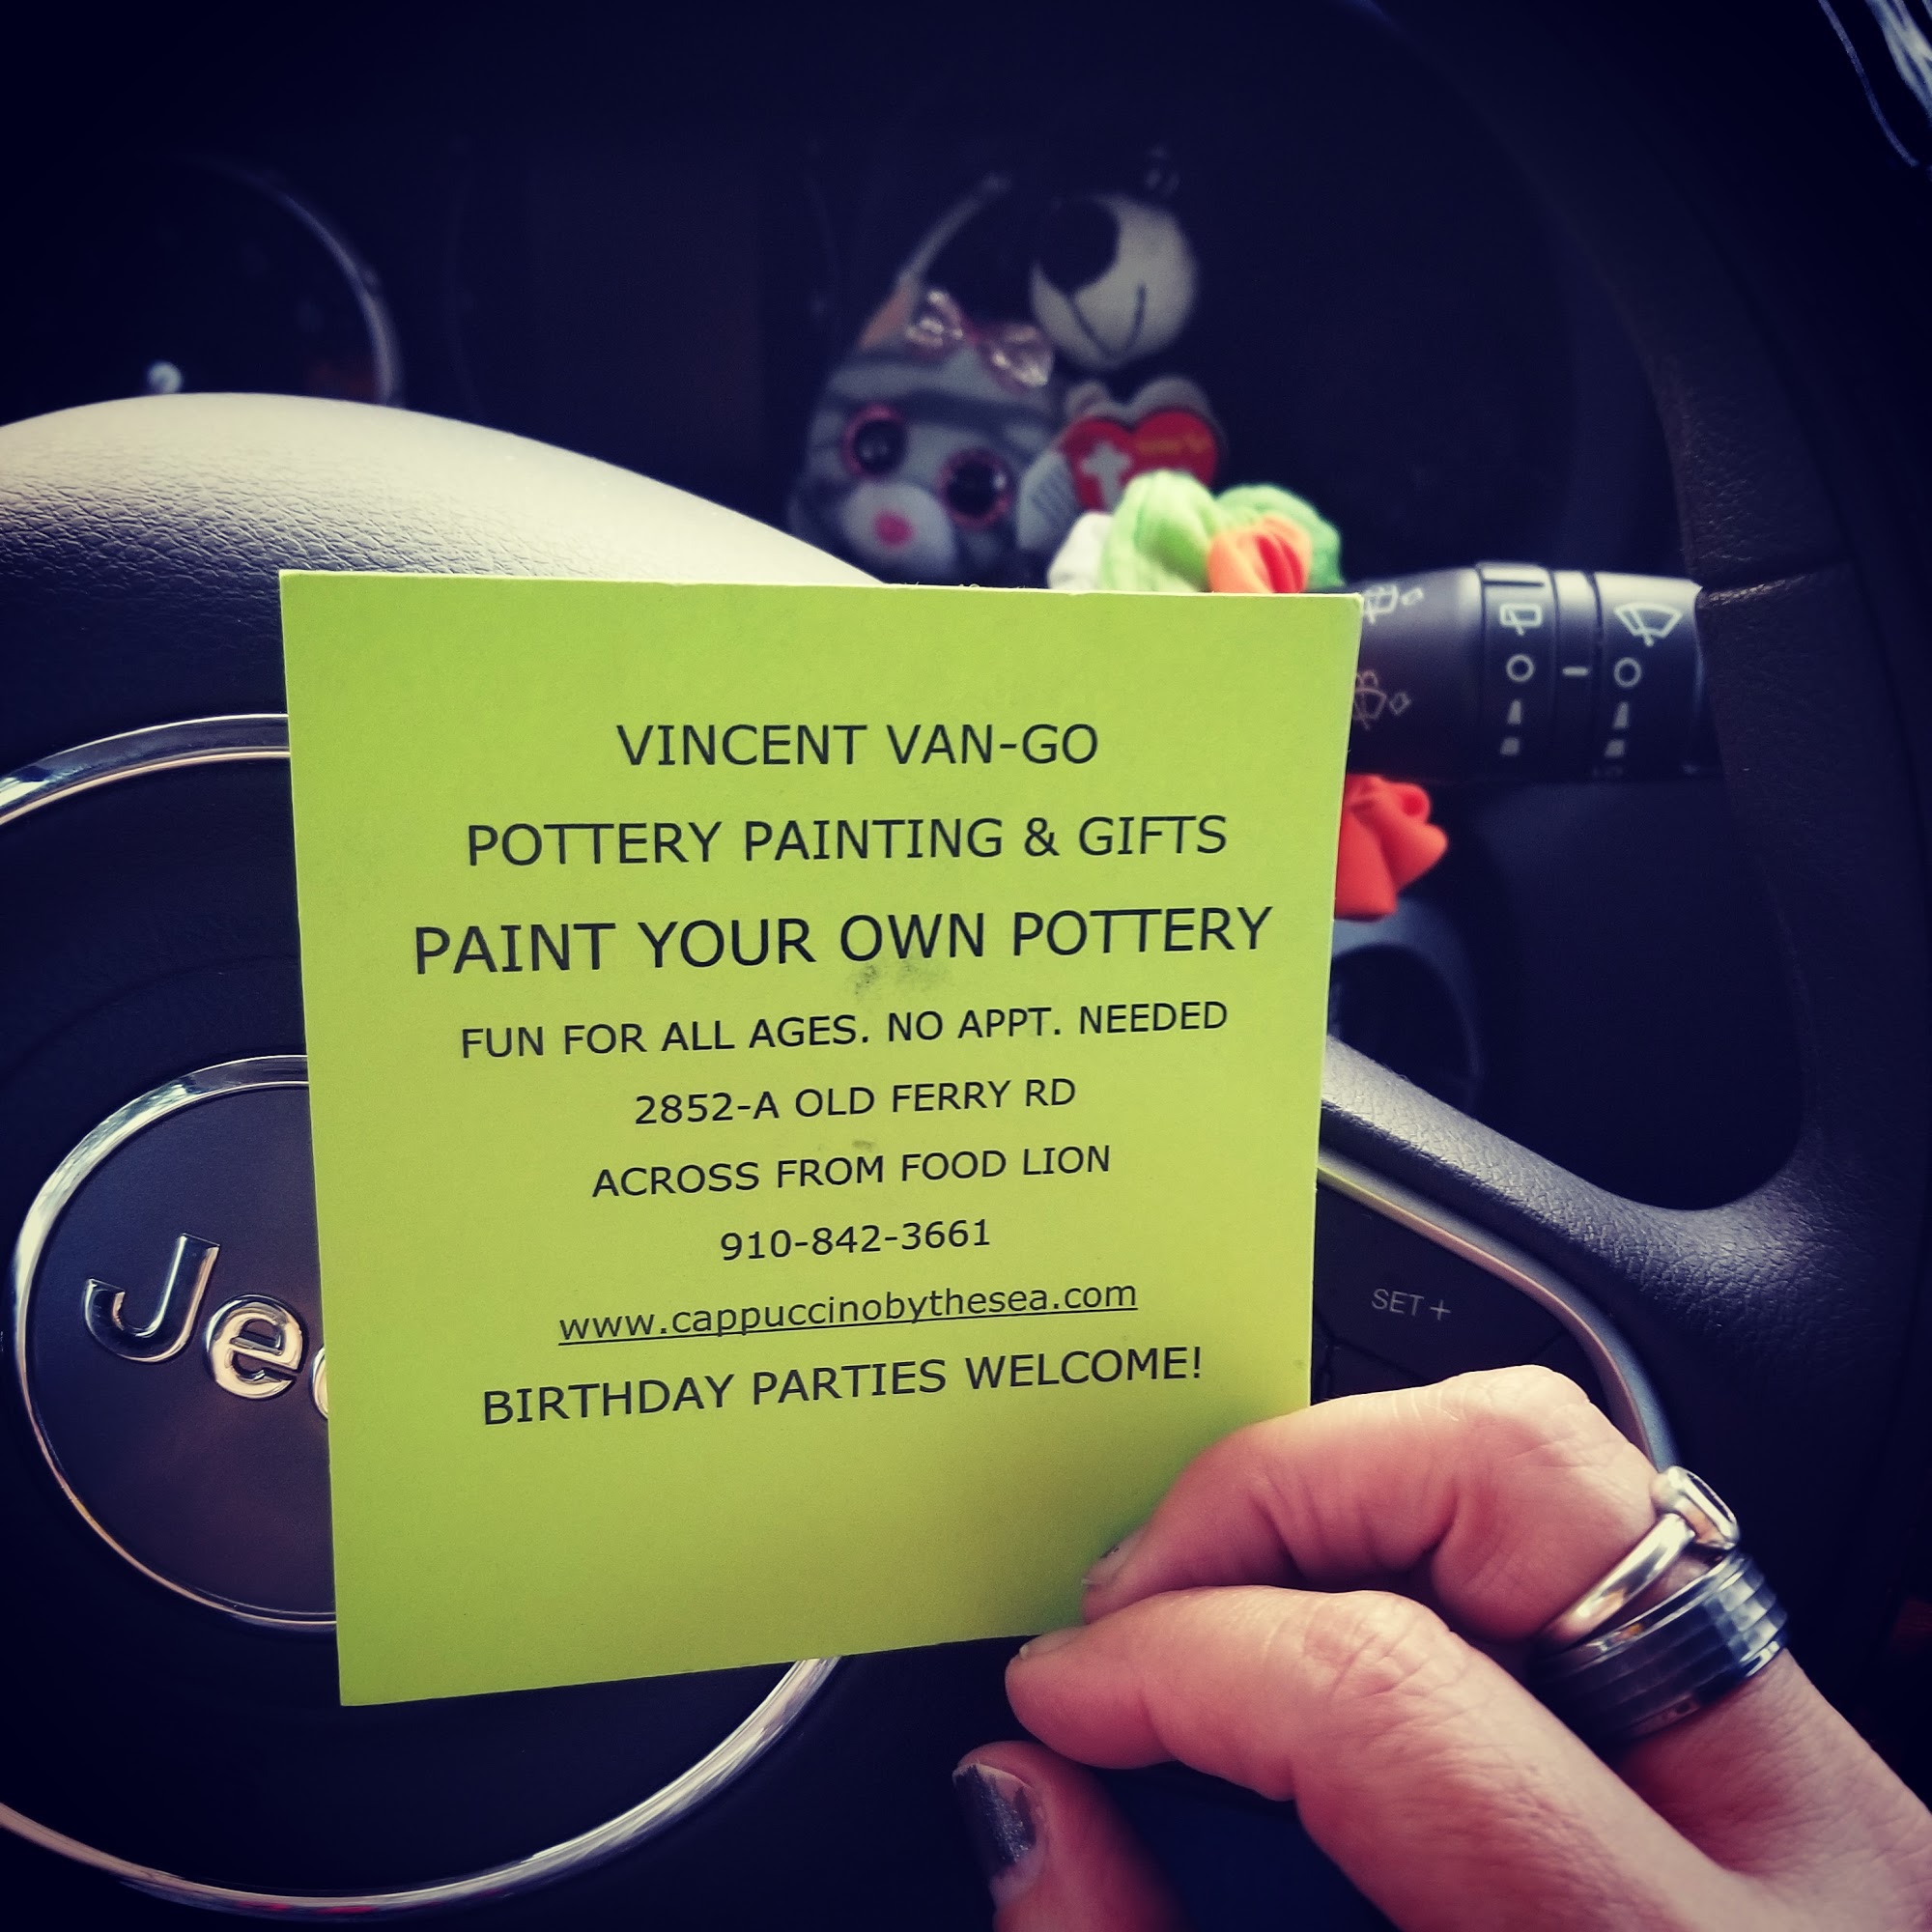 VINCENT VAN-GO
POTTERY PAINTING & GIFTS
PAINT YOUR OWN POTTERY
FUN FOR ALL AGES. NO APPT. NEEDED
2852-A OLD FERRY RD
ACROSS FROM FOOD LION
910-842-3661
www.cappuccinobythesea.com
BIRTHDAY PARTIES WELCOME!
Je
SET +